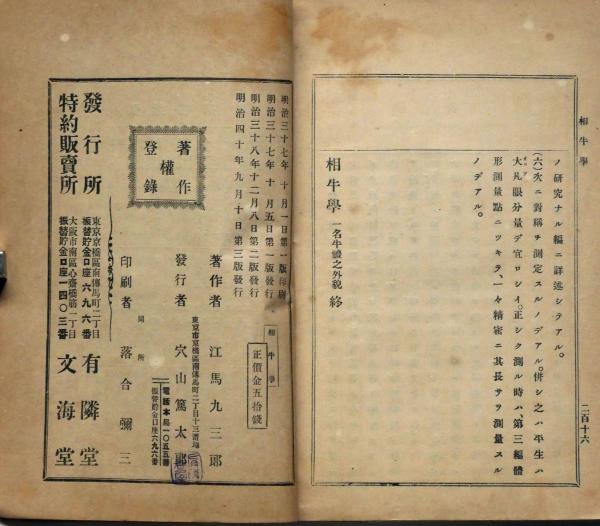 相牛學
二百十六
ノ研究ナル編ニ詳述シテアル。
(六)次ニ對稱ヲ測定スルノデアル。併シ之ハ平生ハ
大凡眼分量デ宜ロシイ。正シク測ル時ハ、第三編體
形測量點ニツキテ、一々精密ニ其長サヲ測量スル
ノデアル。
相牛學 一名牛體之外貌 終
明治三十七年十月一日第一版印刷
明治三十七年十月五日第一版發行
明治三十八年十二月八日第二版發行
明治四十年九月十日第三版發行
相牛學
正價金五拾錢
著作
權
登錄
著作者 江馬九三郎
東京市京橋區南傳馬町二丁目十三番地
發行者 穴山篤太郎
電話本局一〇五五番
振替貯金口座六九六番
印刷者 落合彌三
同所
發行所
東京京橋區南傳馬町二丁目
振替貯金口座六九六番
有隣堂
特約販賣所
大阪市南區心齋橋筋一丁目
振替貯金口座一四〇三番
文海堂